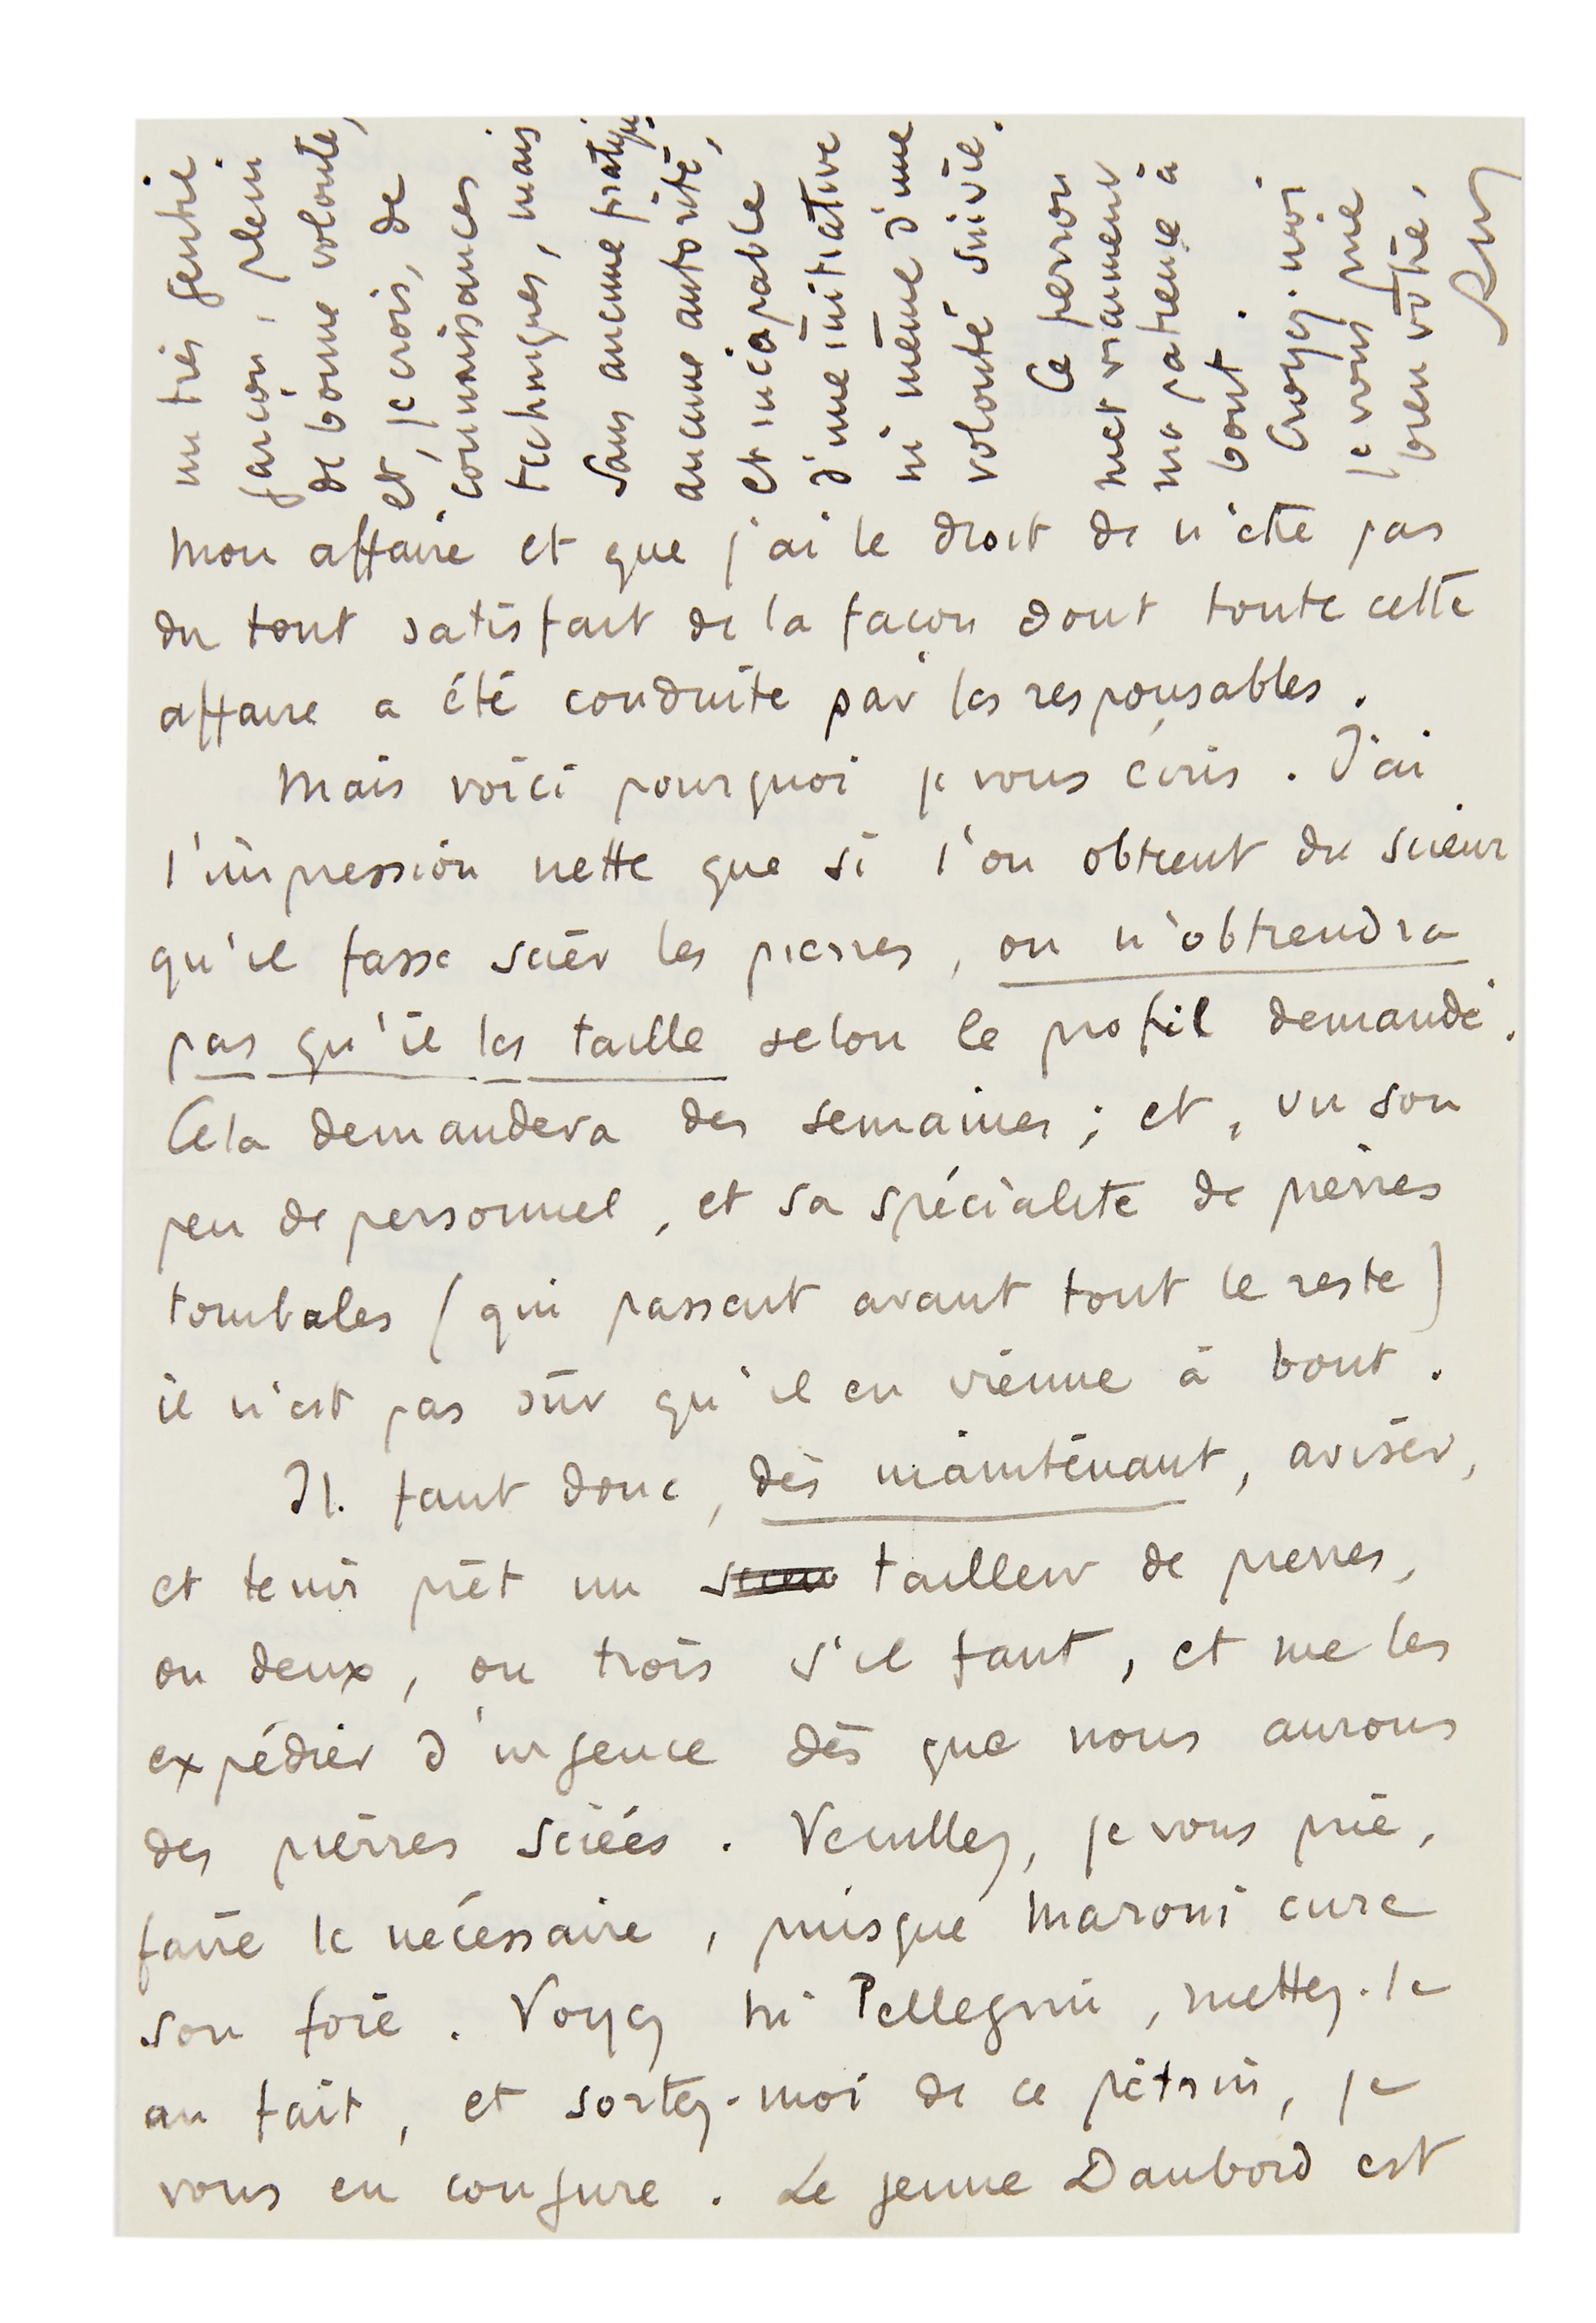 mon affaire et que j'ai le droit de n'être pas
du tout satisfait de la façon dont toute cette
affaire a été conduite par les responsables.
Mais voici pourquoi je vous écris. J'ai
l'impression nette que si l'on obtient du scieur
qu'il fasse scier les pierres, on n'obtiendra
pas qu'il les taille selon le profil demandé.
Cela demandera des semaines ; et, vu son
peu de personnel, et sa spécialité de pierres
tombales (qui passent avant tout le reste)
il n'est pas sûr qu'il en vienne à bout.
Il faut donc, dès maintenant, aviser,
et tenir prêt un tailleur de pierres,
ou deux, ou trois s'il faut, et me les
expédier d'urgence dès que nous aurons
des pierres sciées. Veuillez, je vous prie,
faire le nécessaire, puisque Maroni cure
son foie. Voyez Pellegrini, mettez-le
au fait, et sortez-moi de ce pétrin, je
vous en conjure. Le jeune Daubord est
un très gentil
garçon, plein
de bonne volonté,
et, je crois, de
connaissances
techniques, mais
sans aucune pratique
aucune autorité,
et incapable
d'une initiative
ni même d'une
volonté suivie.
Ce perron
met vraiment
ma patience à
bout.
Croyez-moi
je vous prie
bien vôtre,